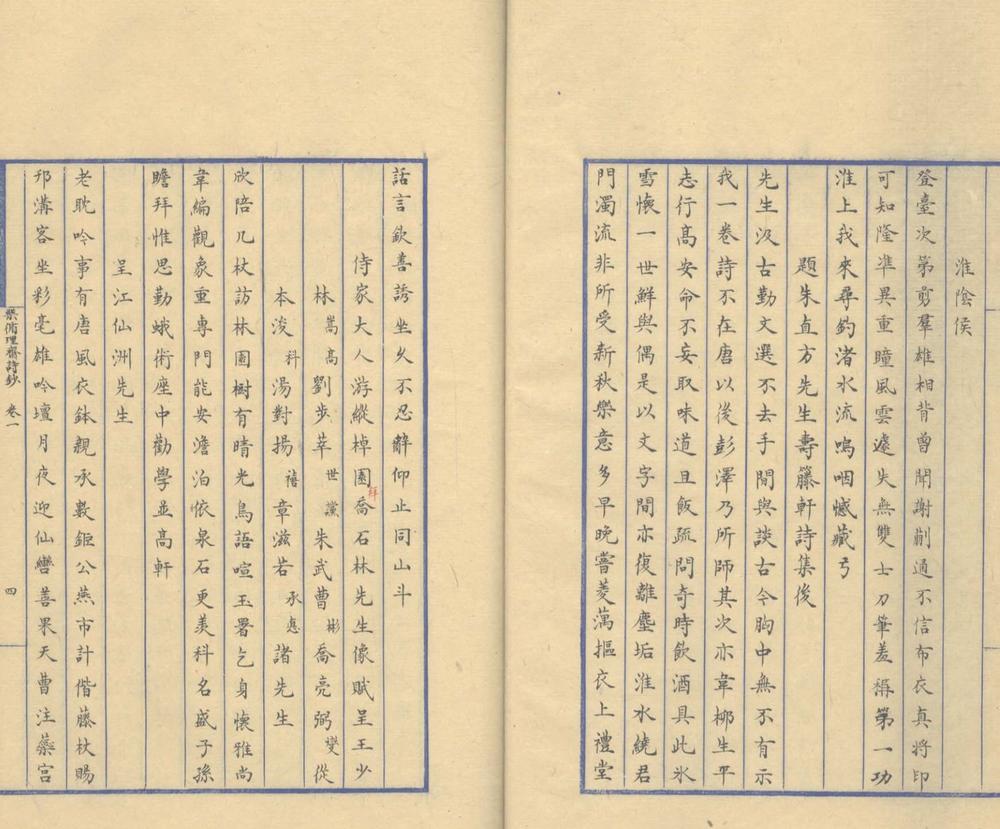 淮陰侯
登臺次第剪羣雄相背曾聞謝蒯通不信布衣真將印
可知隆準異重瞳風雲遽失無雙士刀筆羞稱第一功
淮上我來尋釣渚水流嗚咽憾藏弓
題朱直方先生壽籐軒詩集後
先生汲古勤文選不去手間與談古今胸中無不有示
我一卷詩不在唐以後彭澤乃所師其次亦韋柳生平
志行高安命不妄取味道且飯疏問奇時飲酒具此氷
雪懷一世鮮與偶是以文字間亦復離塵垢淮水繞君
門濁流非所受新秋樂意多早晚嘗菱藕摳衣上禮堂
話言欽善誘坐久不忍辭仰止同山斗
侍家大人游縱棹園拜喬石林先生像賦呈王少
林嵩高劉步莘世讜朱武曹彬喬亮弼燮從
本浚科湯對揚禧章滋若承惪諸先生
欣陪几杖訪林園樹有晴光鳥語喧玉署乞身懷雅尚
韋編觀象重專門能安澹泊依泉石更羡科名盛子孫
瞻拜惟思勤蛾術座中勸學並高軒
呈江仙洲先生
老耽吟事有唐風衣鉢親承數鉅公燕市計偕藤杖賜
邗溝客坐彩毫雄吟壇月夜迎仙轡善果天曹注蘂宮
樂脩理齋詩鈔 卷一
四